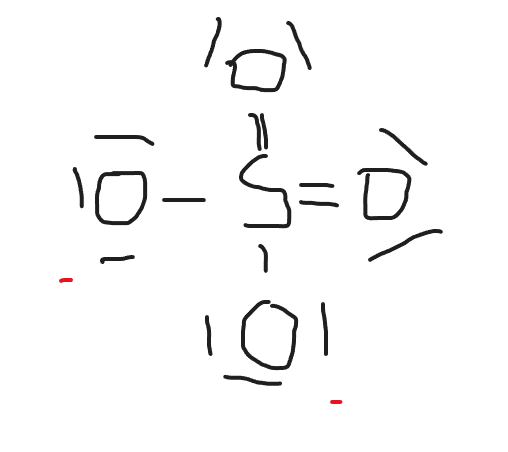 O
O − S = O
O